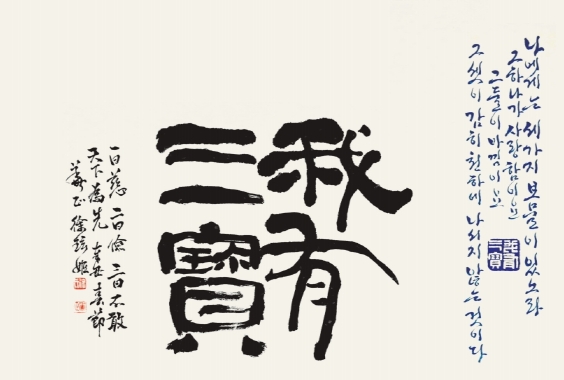 나에게는 세가지 보물이 있노라
그하나가 사랑함이요
그둘이 아낌이요
그셋이 감히 천하에 나서지 않는 것이다
我有
三寶
我有
三寶
一曰慈 二曰儉 三曰不敢
天下爲先
徐